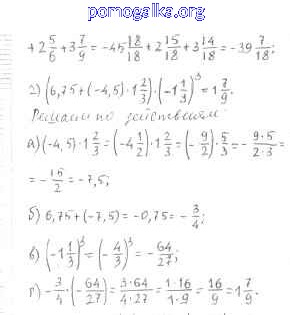 pomogalka.org
+ 2 5/6 + 3 7/9 = -45 18/18 + 2 15/18 + 3 14/18 = -39 7/18;
2) (6,75 + (-4,5) · 1 2/3) · (-1 1/3)³ = 1 7/9.
Решаем по действиям.
а) (-4,5) · 1 2/3 = (-4 1/2) · 1 2/3 = (-9/2) · 5/3 = - 9·5/2·3 =
= - 15/2 = -7,5;
б) 6,75 + (-7,5) = -0,75 = - 3/4;
в) (-1 1/3)³ = (-4/3)³ = - 64/27;
г) - 3/4 · (- 64/27) = 3·64/4·27 = 1·16/1·9 = 16/9 = 1 7/9.